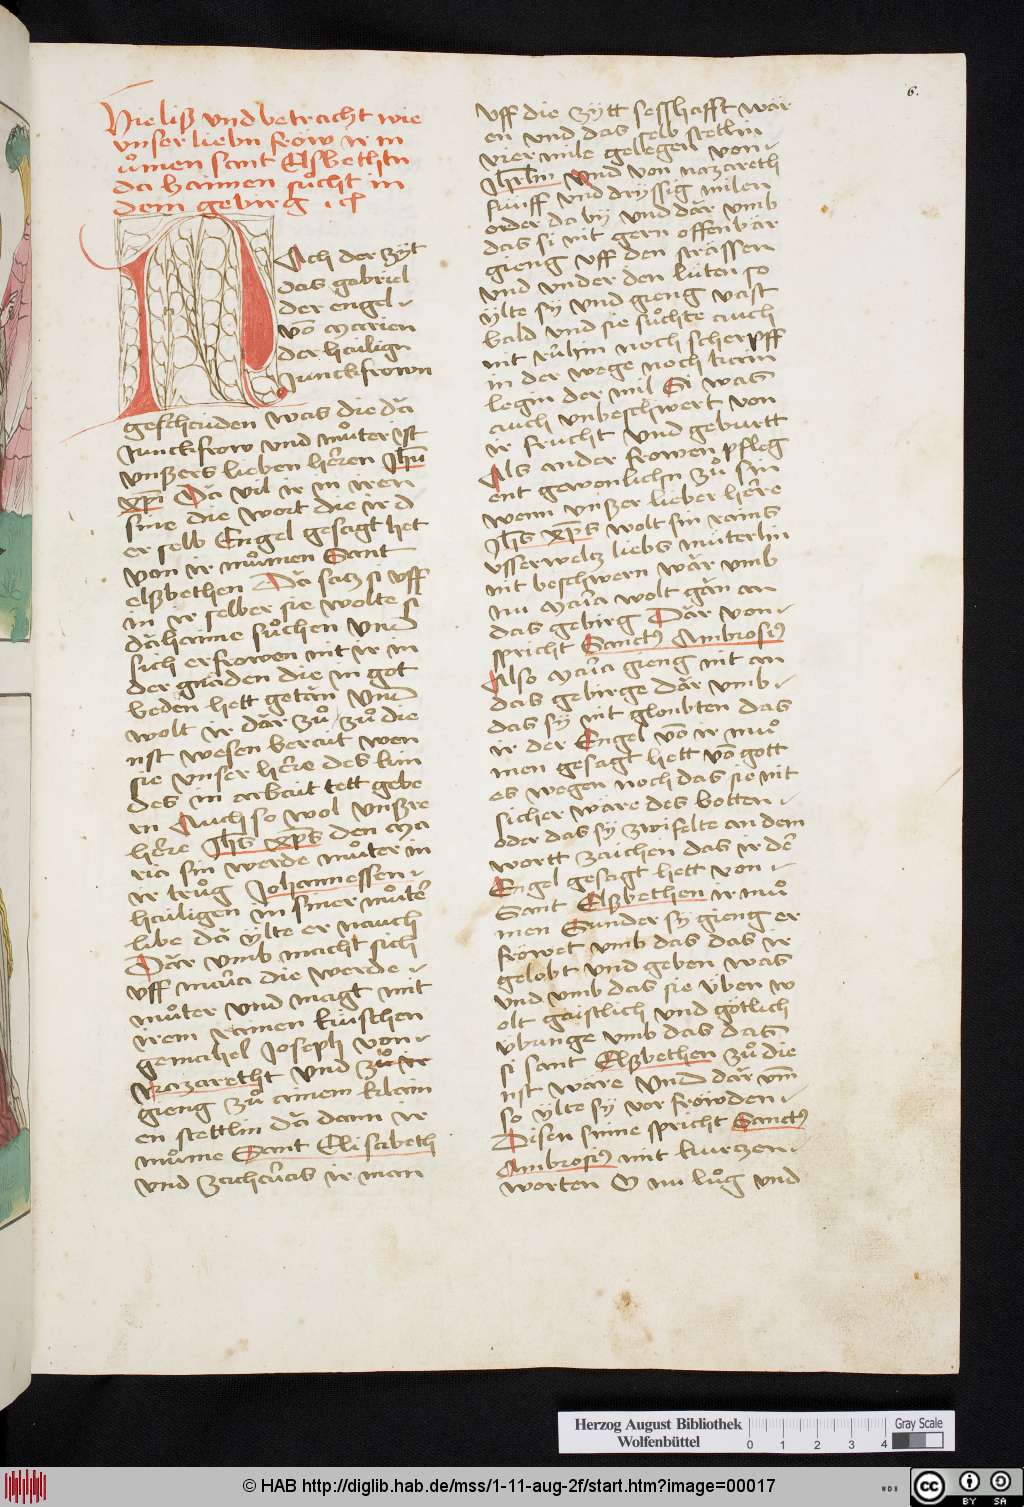 6.
Hie liß vnd betracht wie
vnser liebn fröw ir m
uͦmen sant Elsbethen
da haimen suͦcht in
dem gebirg
Nach der zyt
das gabriel
der engel
vō Marien
der hailign
Junckfrown
geschaiden was die dā
Junckfrow vnd muͦter ist
vnßers lieben herren Jhū
xp̄i Dā vil ir in iren
sine die wort die ir d
er selb Engel gesagt het
von ir muͦmen Sant
elßbethen Dā sacz si vff
in ir selber sie wolte si
dāhaime suͦchen Vnd
sich erfrowen mit ir in
der gnāden die in got
beden hett getān Vnd
wolt ir dār zuͦ zuͦ die
nst wesen berait wen
sie vnser herre des kin
des in arbait tett gebe
rn Auch so wol vnßre
herre Jhs xp̄s den Ma
ria sin werde muͦter in
ir truͦg Johannessen
hailigen in siner muͦter
libe dā ÿlte er nauch
Dār vmb macht sich
vff maria die werde
muͦter vnd magt mit
irem rainen kuischen
gemahel Joseph von
Nazaretht vnd zuͦ ir
gieng zuͦ ainem klain
en stettlin dā dann ir
muͦme Sant Elisabeth
vnd zacharias ir man
vff die zytt sesshafft wār
en vnd das selb stetlin
vier mile gelegen von
Jhrlm vnd von nazareth
fünff vnd dryssig milen
oder da by vnd dār vmb
das si nit gern offenbār
gieng vff den strāssen
vnd vnder den lüten so
ÿlte sy vnd gieng vast
bald vnd sie suͦchte auch
nit ruͦhin noch scherpff
in der wege noch kain
legin der mil Si was
auch vnbeschwert von
ir frucht vnd geburtt
Als ander frowen pfleg
ent gewonlichn zuͦ sin
wenn vnßer lieber herre
Jhs xp̄s wolt sin rains
vsserweltz liebs müterlin
nit beschwern wār vmb
nu Maria wolt gān an
das gebirg Dār von
spricht Sanctus Ambrosius
Also Maria gieng nit an
das gebirge dār vmb
das sy nit gloubten das
ir der Engel vō ir muͦ
men gesagt hett vō gott
es wegen noch das sie nit
sicher wāre des botten
oder das sy zwifelte an dem
wortt zaichen das ir der
Engel gesagt hett von
Sant Elßbethen ir muͦ
men Sunder sy gieng er
fröwet vmb das das ir
gelobt vnd geben was
vnd vmb das sie ÿben w
olt gaistlich vnd götlich
ÿbunge vmb das das
si sant Elßbethen zuͦ die
nst wāre Vnd dār vm̄
so ÿlte sy vor fröwden
Disen sinne spricht Sanctus
Ambrosius mit kurczen
worten O nu luͦg vnd
Herzog August Bibliothek
Wolfenbüttel
0 1 2 3 4
Gray Scale
© HAB http://diglib.hab.de/mss/1-11-aug-2f/start.htm?image=00017
WDB
cc BY SA